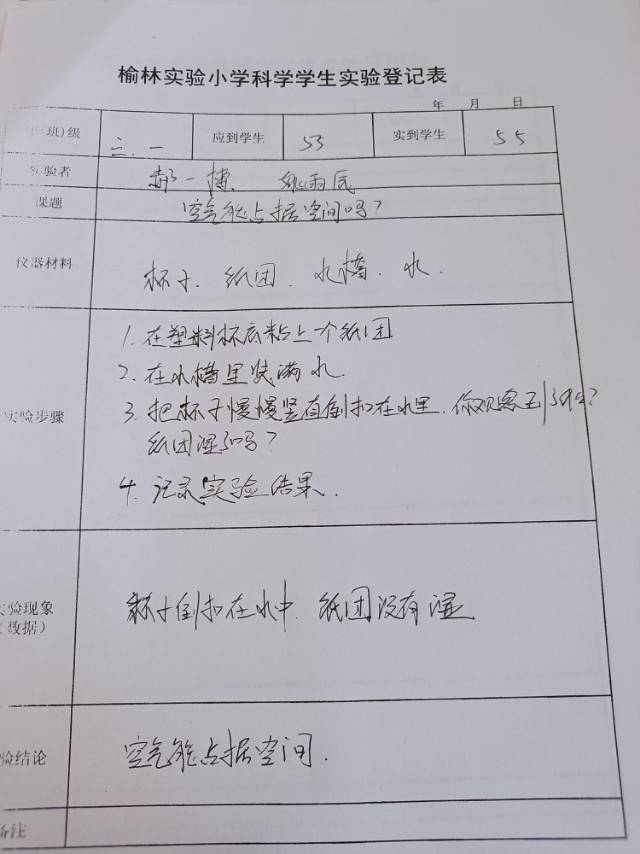 榆林实验小学科学学生实验登记表
年 月 日
(班)级 三.一 应到学生 53 实到学生 55
实验者 郝一搏 姚雨辰
课题 空气能占据空间吗?
仪器材料 杯子. 纸团. 水槽. 水.
1. 在塑料杯底粘上一个纸团
2. 在水槽里装满水.
实验步骤 3. 把杯子慢慢竖直倒扣在水里. 你观察到了什么?
纸团湿了吗?
4. 记录实验结果.
实验现象 杯子倒扣在水中. 纸团没有湿
(数据)
验结论 空气能占据空间.
备注